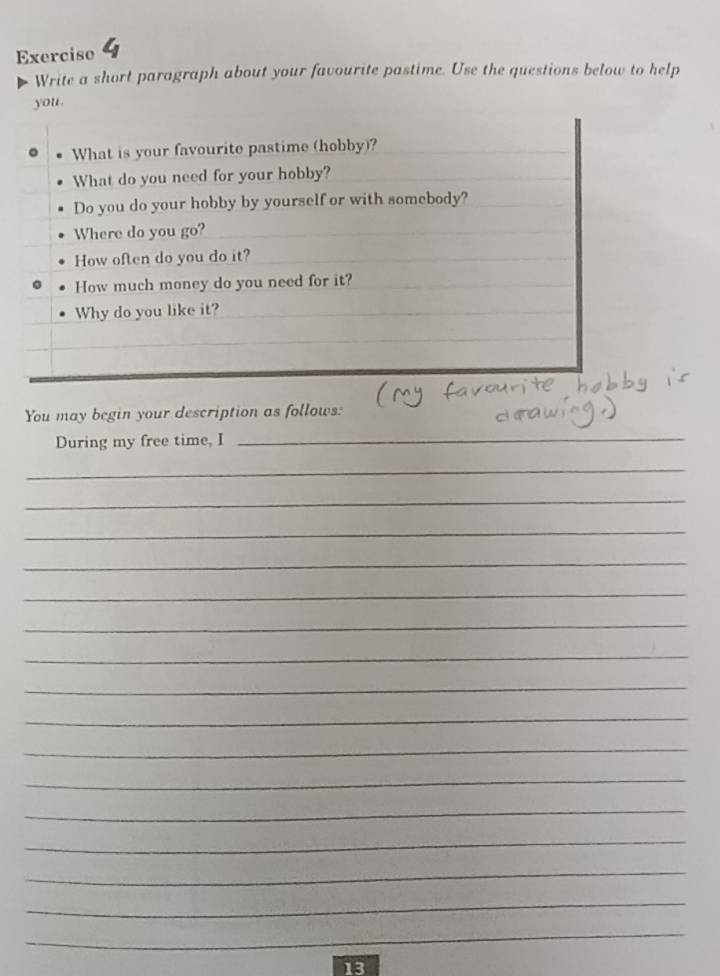 Exercise 4
Write a short paragraph about your favourite pastime. Use the questions below to help
you.
• What is your favourite pastime (hobby)?
• What do you need for your hobby?
• Do you do your hobby by yourself or with somebody?
• Where do you go?
• How often do you do it?
• How much money do you need for it?
• Why do you like it?
(My favourite hobby is
drawing.)
You may begin your description as follows:
During my free time, I
13